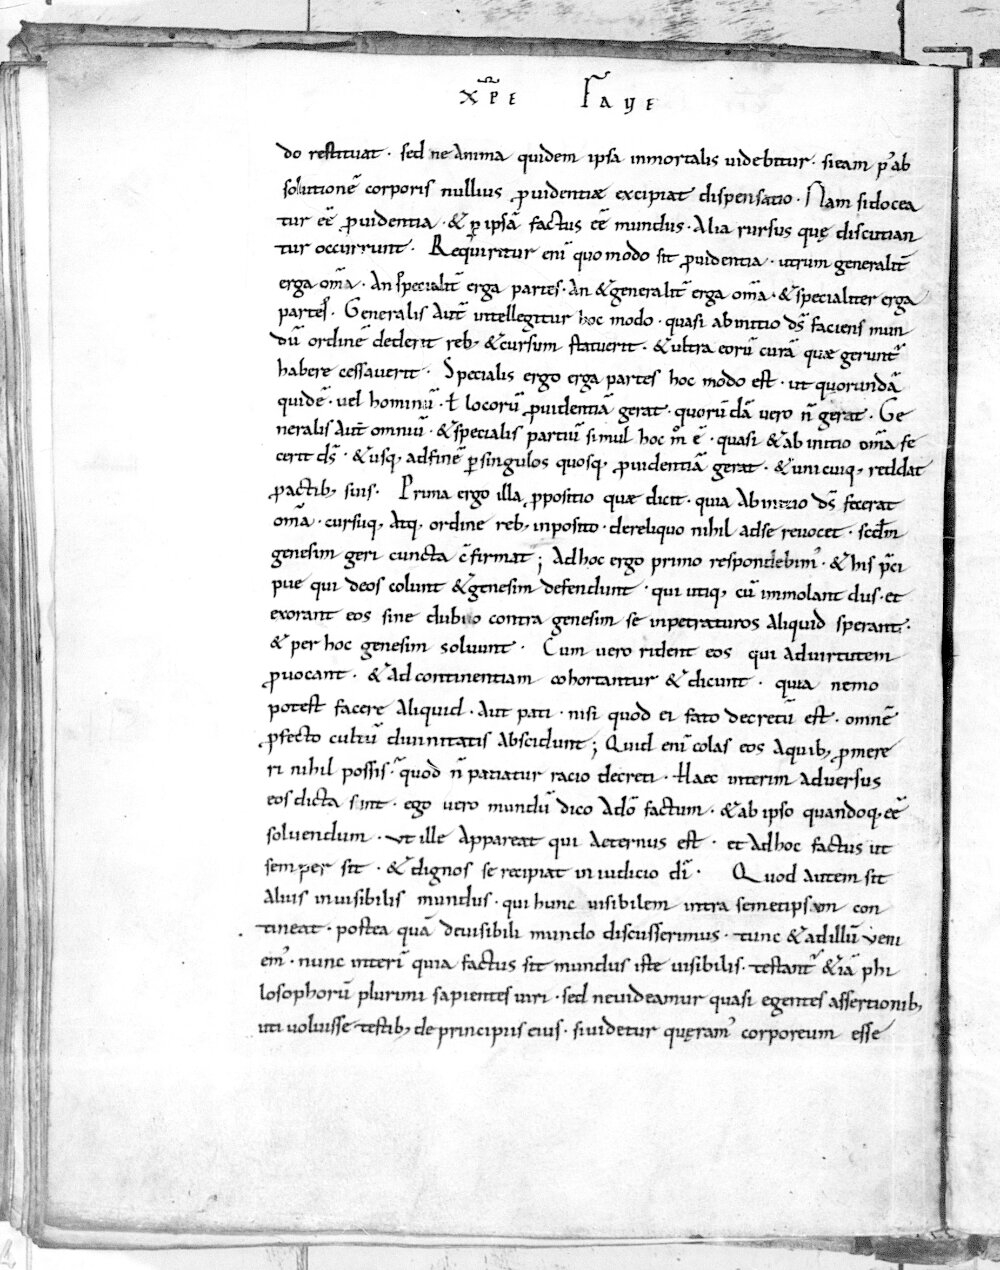 xp̄e faye
do restituat · sed ne anima quidem ipsa inmortalis uidebitur · si eam p᷒ ab
solutionē corporis nullius ꝓuidentiæ excipiat dispensatio · Nam si docea
tur eē ꝓuidentia · & ꝑ ipsā factus eē mundus · Alia rursus quę discutian
tur occurrunt · Requiritur eni᷒ quo modo sit ꝓuidentia · utrum generalit̄
erga om̄a · An specialit̄ erga partes · An & generalit̄ erga om̄a · & specialiter erga
partes · Generalis aut̄ intellegitur hoc modo · quasi ab initio d̄s faciens mun
dū ordinē dederit reb; & cursum statuerit · & ultra eorū curā quæ gerunt᷒
habere cessauerit · Specialis ergo erga partes hoc modo est · ut quorundā
quidē · uel hominū · ł locorū ꝓuidentiā gerat · quorūdā uero n̄ gerat · Ge
neralis aut̄ omniū · & specialis partiū simul hoc m̊ ē · quasi & ab initio om̄a fe
cerit d̄s · & usq; ad finē ꝑ singulos quosq; ꝓuidentiā gerat · & unicuiq; reddat
ꝓ actib; suis · Prima ergo illa ꝓpositio quæ dicit · quia ab initio d̄s fecerat
om̄a · cursuq; atq; ordine reb; inposito · de reliquo nihil ad se reuocet · scdm̄
genesim geri cuncta c̄firmat ; Ad hoc ergo primo respondebim᷒ · & his p̄ci
pue qui deos colunt & genesim defendunt · qui utiq; cū immolant diis · et
exorant eos sine dubio contra genesim se inpetraturos aliquid sperant ·
& per hoc genesim soluunt · Cum uero rident eos qui ad uirtutem
ꝓuocant · & ad continentiam cohortantur & dicunt · quia nemo
potest facere aliquid · aut pati · nisi quod ei fato decretū est · omnē
ꝓfecto cultū diuinitatis abscidunt ; Quid eni᷒ colas eos a quib; ꝓmere
ri nihil possis · quod n̄ patiatur racio decreti · Haec interim aduersus
eos dicta sint · ego uero mundū dico a dō factum · & ab ipso quandoq; eē
soluendum · ut ille appareat qui aeternus est · et ad hoc factus ut
semper sit · & dignos se recipiat in iudicio dī · Quod autem sit
alius inuisibilis mundus · qui hunc uisibilem intra semetipsam con
tineat · postea quā de uisibili mundo discusserimus · tunc & ad illū ueni
em᷒ · nunc interī quia factus sit mundus iste uisibilis · testant᷒ & iā phi
losophorū plurimi sapientes uiri · sed ne uideamur quasi egentes assertionib;
uti uoluisse testib; de principiis eius · si uidetur quęram᷒ corporeum esse